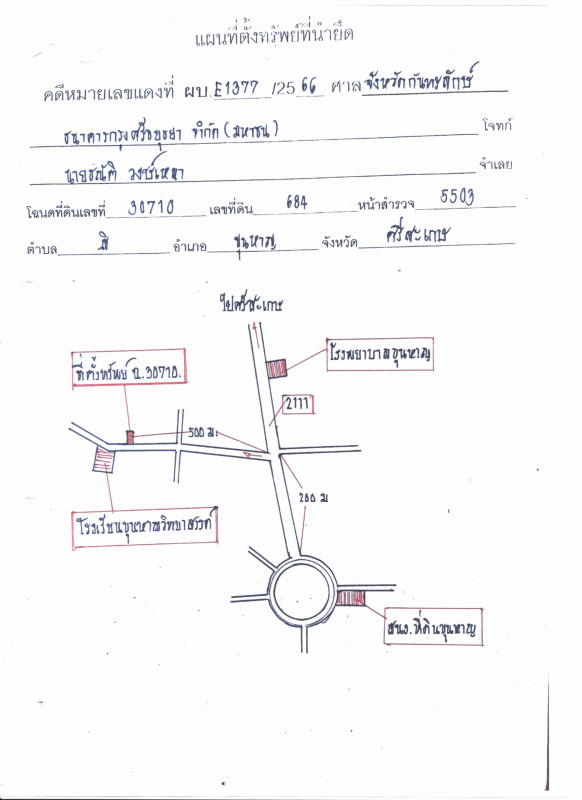 แผนที่ตั้งทรัพย์ที่นำยึด
คดีหมายเลขแดงที่ ผบ.E1377/2566 ศาลจังหวัดกันทรลักษ์
ธนาคารกรุงศรีอยุธยา จำกัด (มหาชน) โจทก์
นาย วงษ์เหลา จำเลย
โฉนดที่ดินเลขที่ 30710 เลขที่ดิน 684 หน้าสำรวจ 5503
ตำบล สิ อำเภอ ขุนหาญ จังหวัด ศรีสะเกษ
ไปศรีสะเกษ
โรงพยาบาลขุนหาญ
ที่ตั้งทรัพย์ ฉ.30710.
2111
500 ม.
200 ม
โรงเรียนขุนหาญวิทยาสรรค์
สนง.ที่ดินขุนหาญ